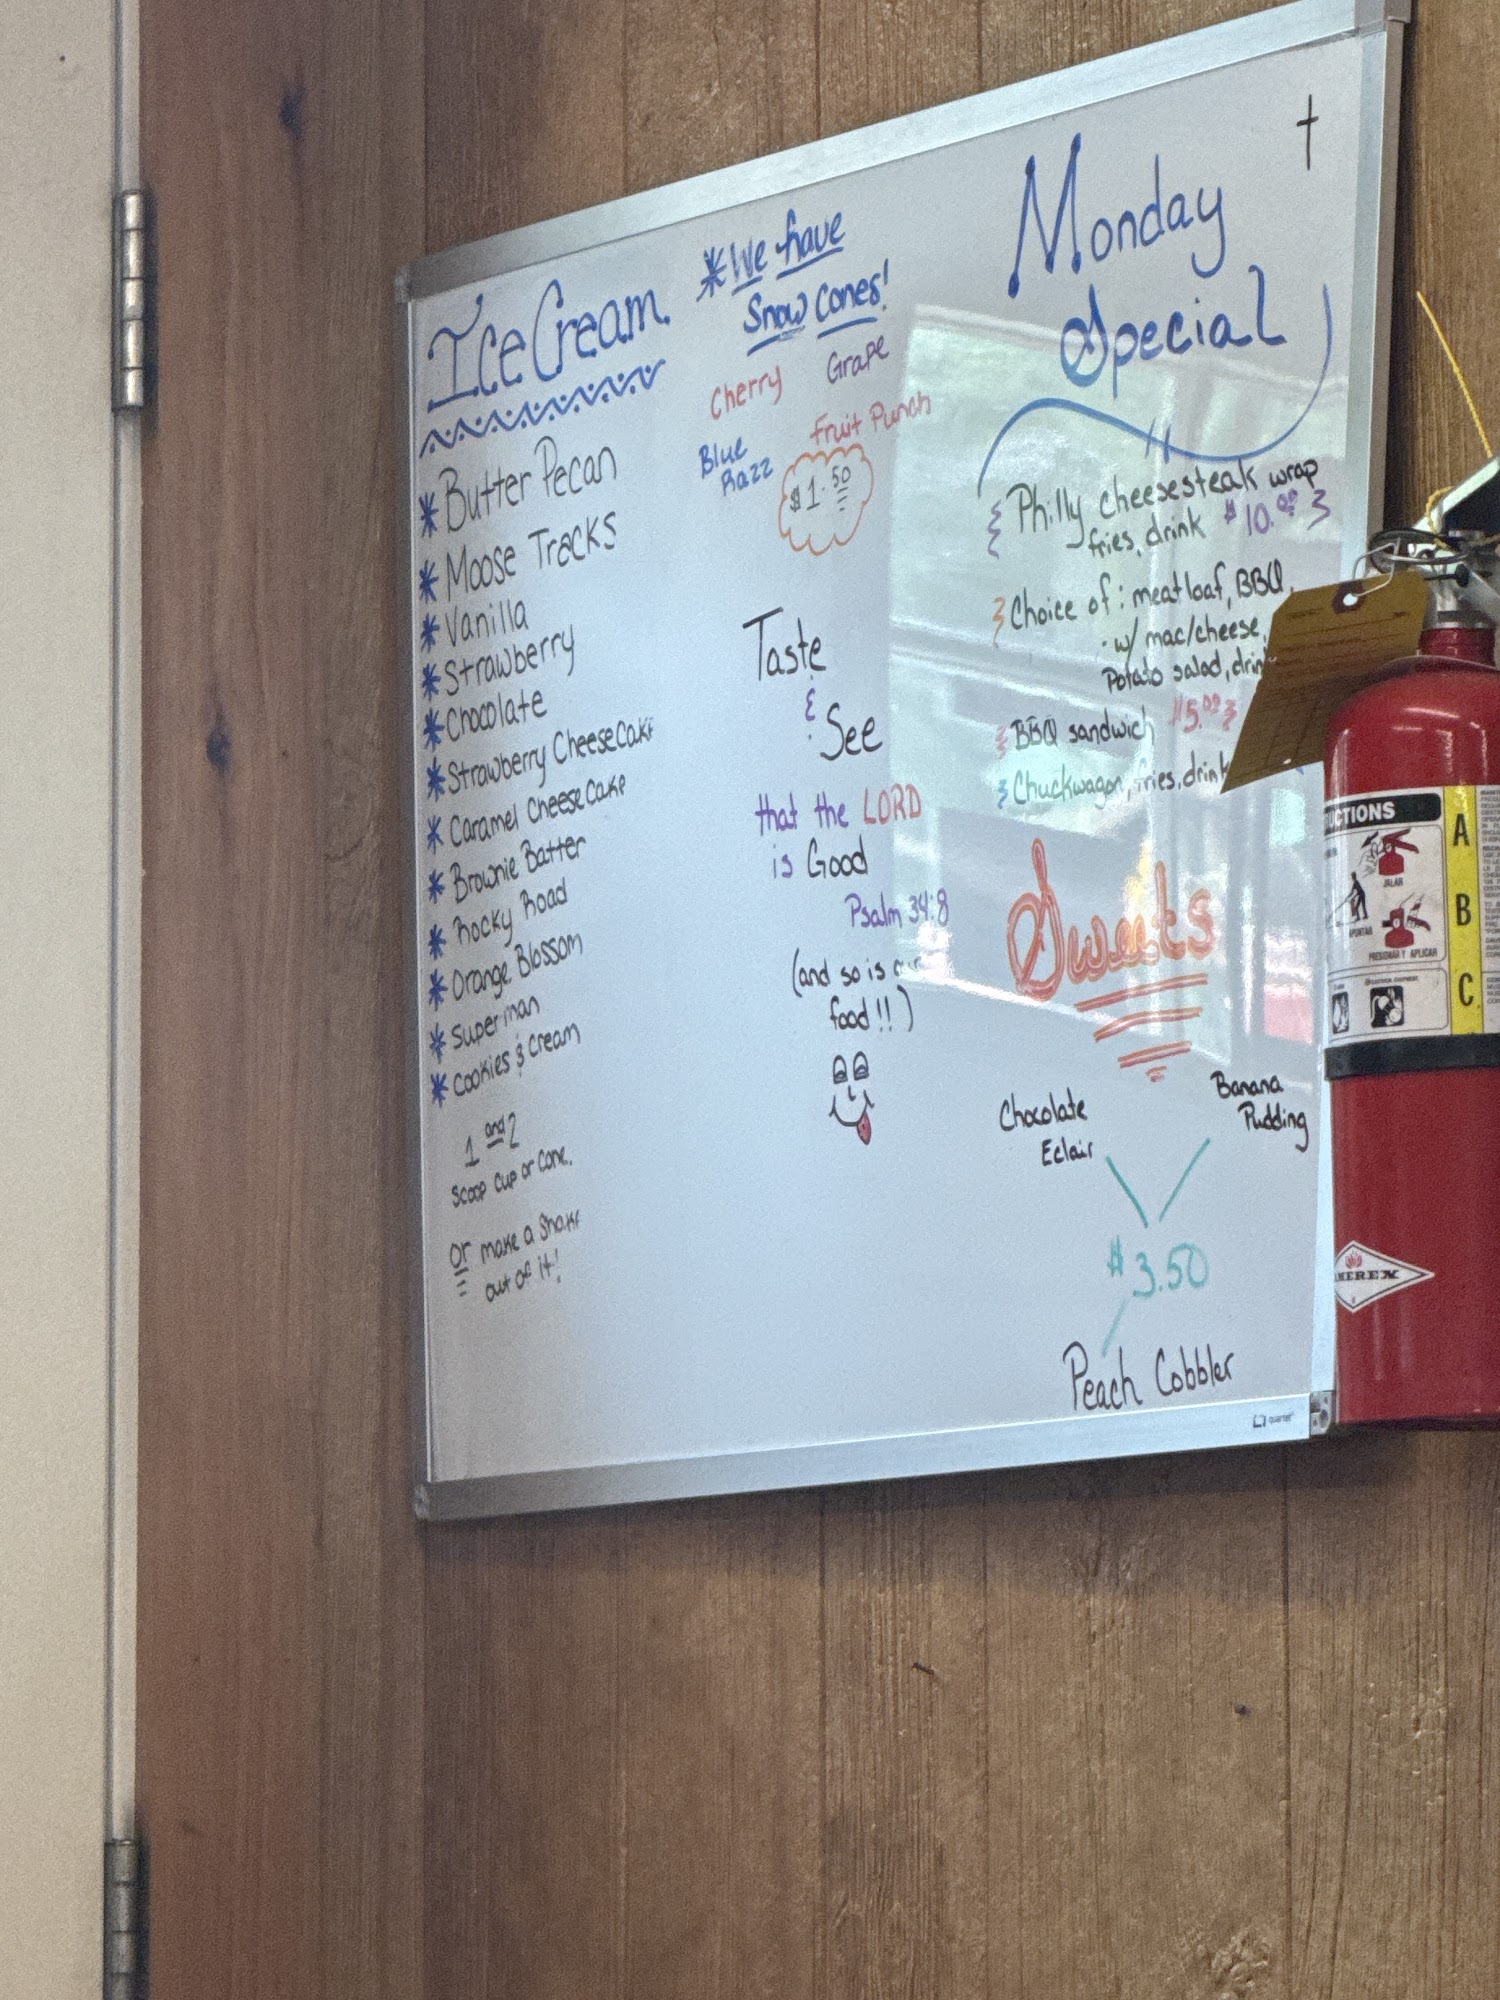 Ice Cream
Butter Pecan
Moose Tracks
Vanilla
Strawberry
Chocolate
Strawberry CheeseCake
Caramel CheeseCake
Brownie Batter
Rocky Road
Orange Blossom
Superman
Cookies & Cream
1 and 2
scoop cup or cone.
or make a shake
out of it!
We have
Snow Cones!
Cherry Grape
Blue
Razz
Fruit Punch
$1.50
Taste
&
See
that the LORD
is Good
Psalm 34:8
(and so is our
food!!)
Monday
Special
Philly cheesesteak wrap
fries, drink $10.00
Choice of: meatloaf, BBQ,
w/ mac/cheese,
Potato salad, drink
BBQ sandwich $5.00
Chuckwagon, fries, drink
Sweets
Chocolate
Eclair
Banana
Pudding
$3.50
Peach Cobbler
quartet
UCTIONS
JALAR
APUNTAR
PRESIONAR Y APLICAR
A
B
C
AMEREX